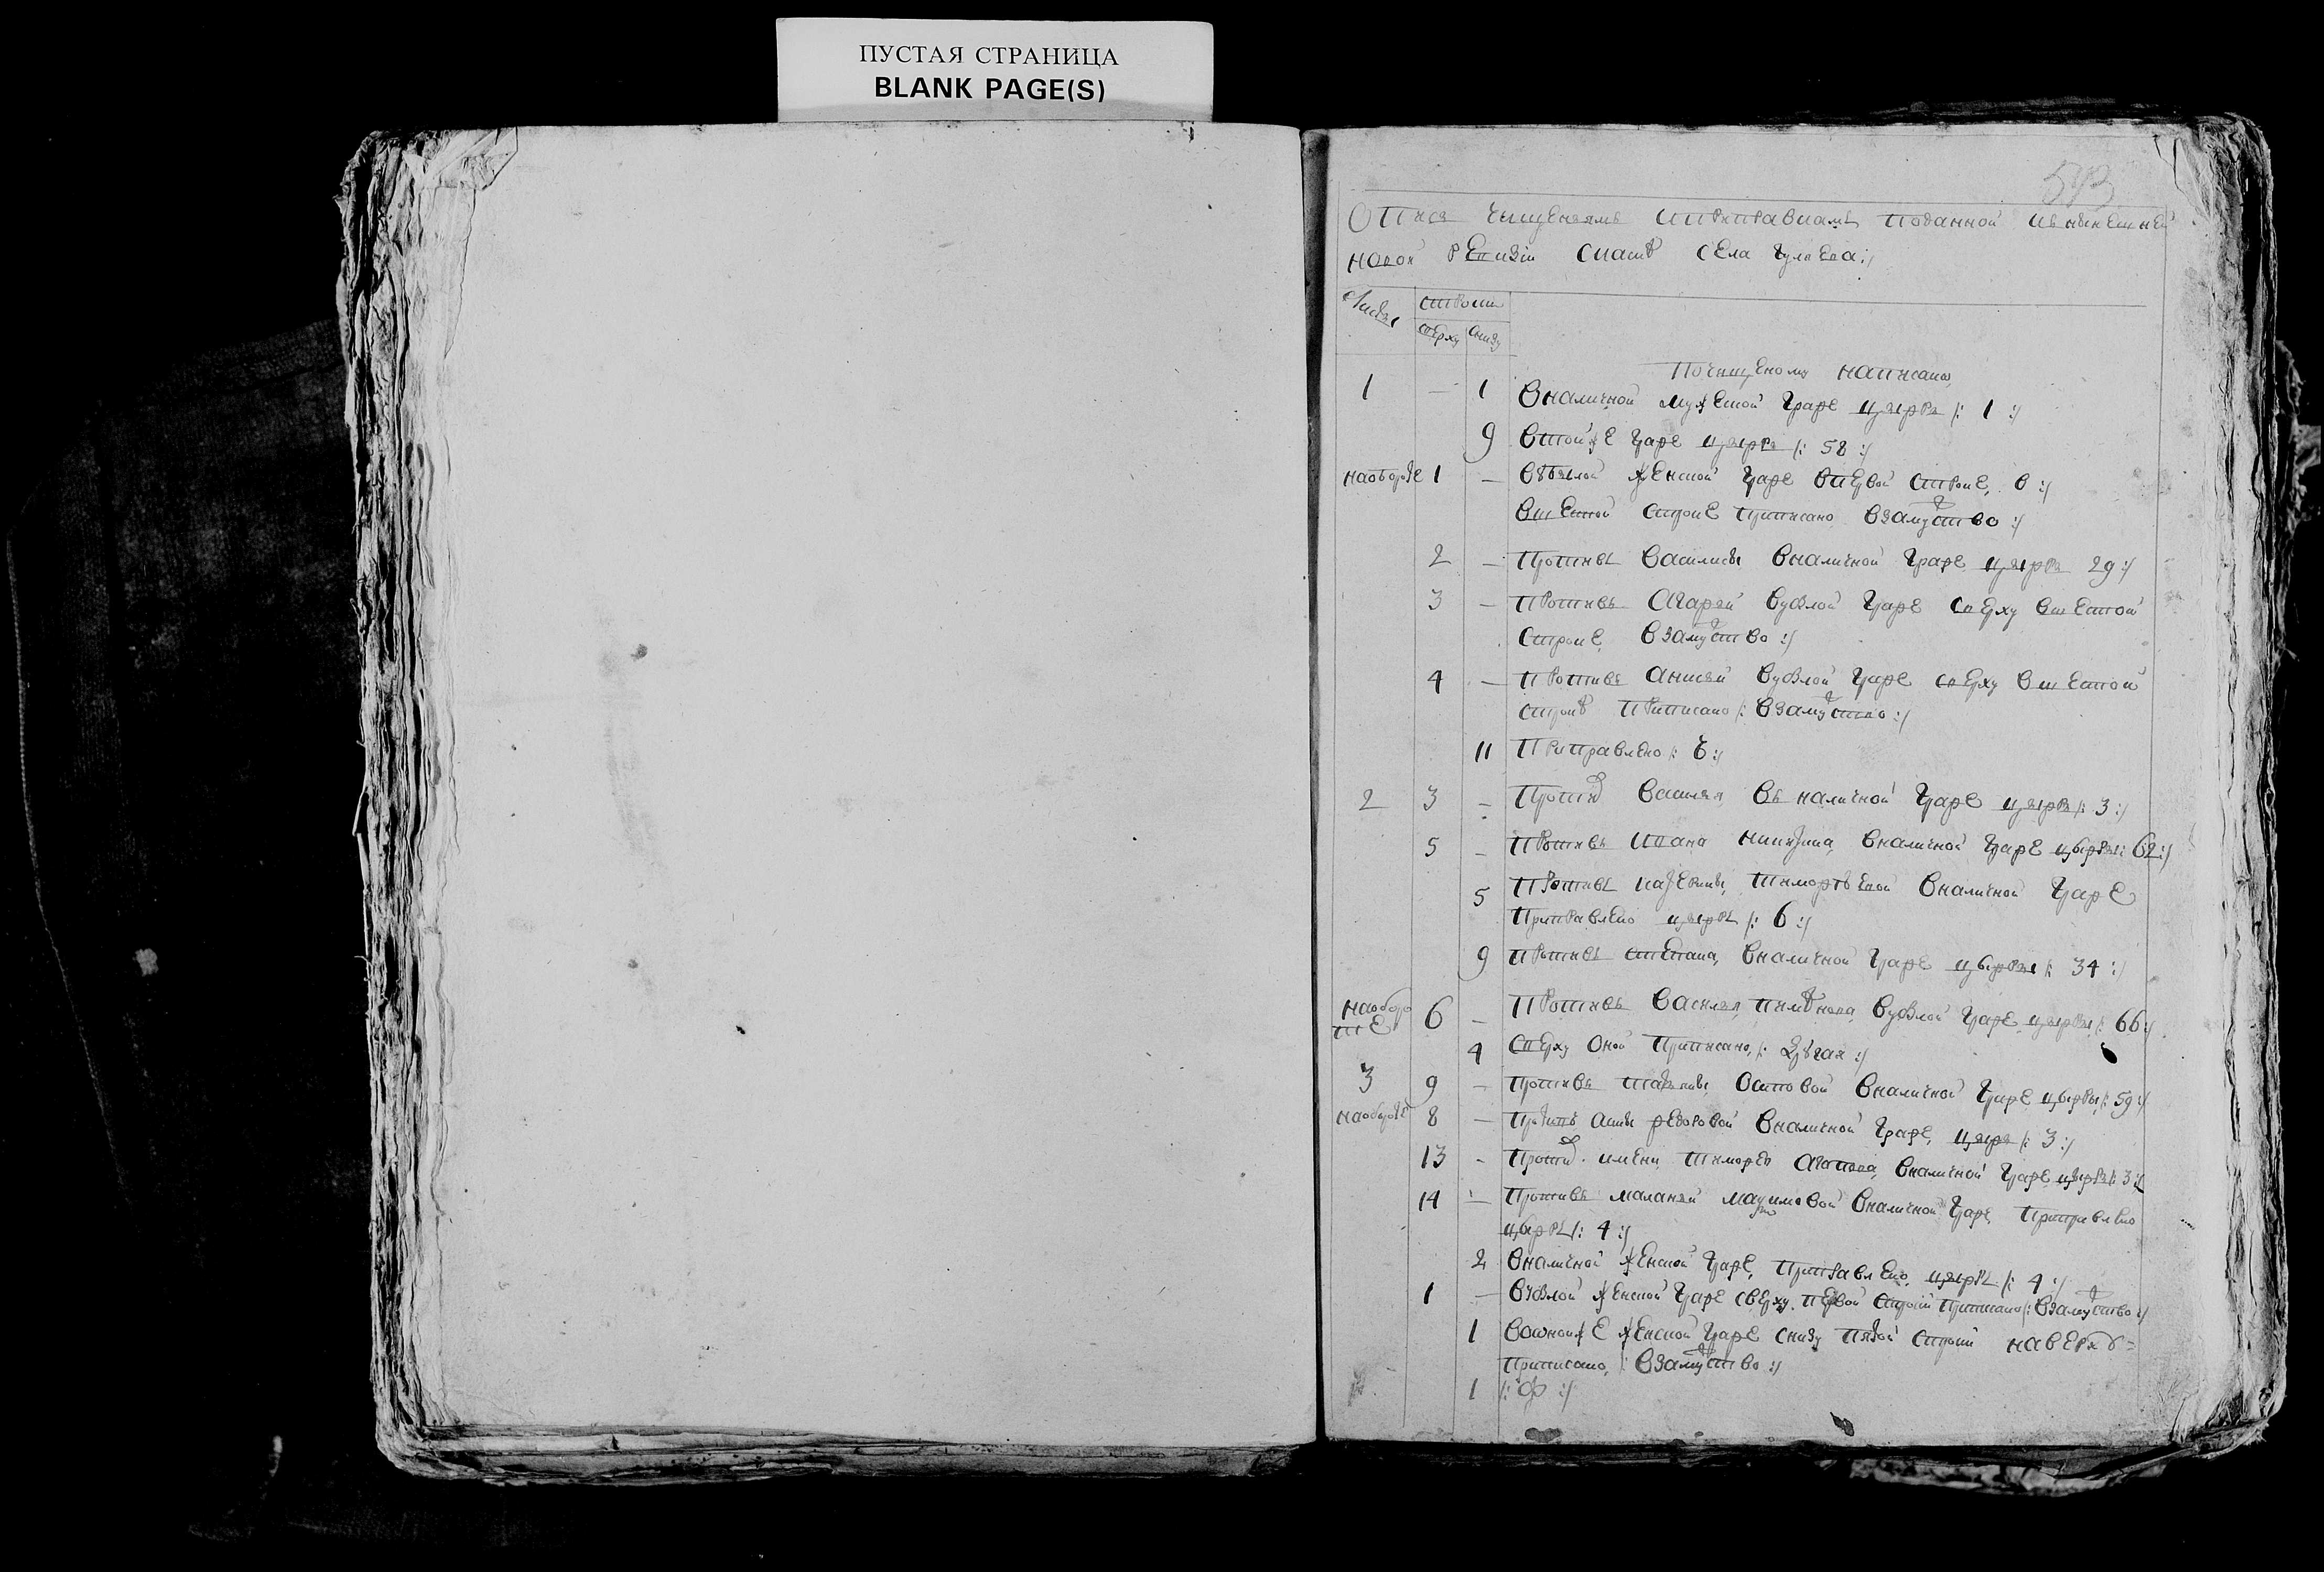 ПУСТАЯ СТРАНИЦА
BLANK PAGE(S)
543
Опись чищениямъ иприправкамъ поданной
ревизіи села
Листы строки
сверху снизу
Почищеному написано
1 — 1 Вналичной мужеской графе цыфра /: 1 :/
9 Втойже графе цыфра /: 58 :/
наоборотѣ 1 — вубылой женской графе впервой строке, в :/
вшестой строке приписано взамужство :/
2 — противъ Василисы вналичной графе цыфра 29 :/
3 — противъ Агафьи вубылой графе сверху вшестой
строке взамужство :/
4 — противъ Анисьи вубылой графе сверху вшестой
строке приписано /: взамужство :/
11 Приправлено /:
2 3 — Противъ Василья въ наличной графе цыфра /: 3 :/
5 — противъ Ивана Никитина вналичной графе цыфры /: 62 :/
5 противъ Катерины Тимофѣевой вналичной графе
приправлено цыфра /: 6 :/
9 противъ Степана, вналичной графе цыфры /: 34 :/
наоборо
те 6 — противъ Василья вубылой графе цыфры /: 66 :/
4 Сверху оной приписано, /: другая :/
3 9 — противъ Татьяны вналичной графе цыфры /: 59 :/
наоборотѣ 8 — противъ Анны Федоровой вналичной графе, цыфра /: 3 :/
13 — против имени Тимофея вналичной графе цыфра /: 3 :/
14 — Противъ Маланьи Максимовой вналичной графе приправлено
цыфра /: 4 :/
2 Вналичной женской графе, приправлено, цыфра /: 4 :/
1 — вубылой женской графе сверху первой строки приписано /: взамужство :/
1 Воонойже женской графе снизу пятой строки наверху
приписано, /: взамужство :/
1 /: ф :/